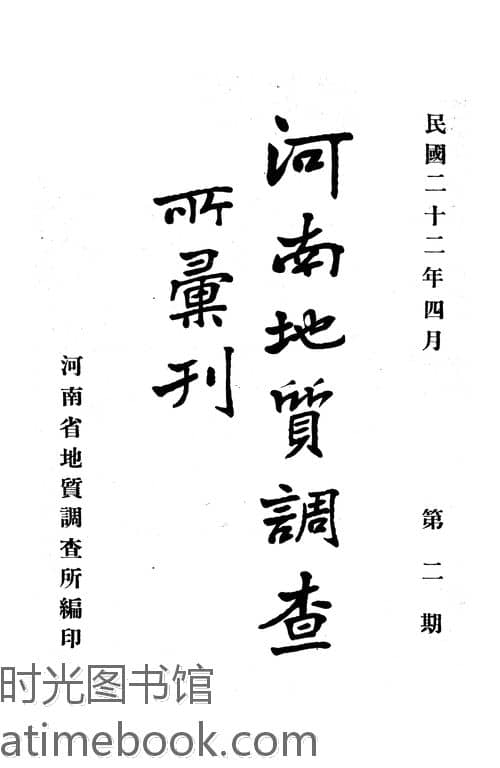 民國二十二年四月　第二期
河南地質調查
所彙刊
河南省地質調查所編印
时光图书馆
atimebook.com